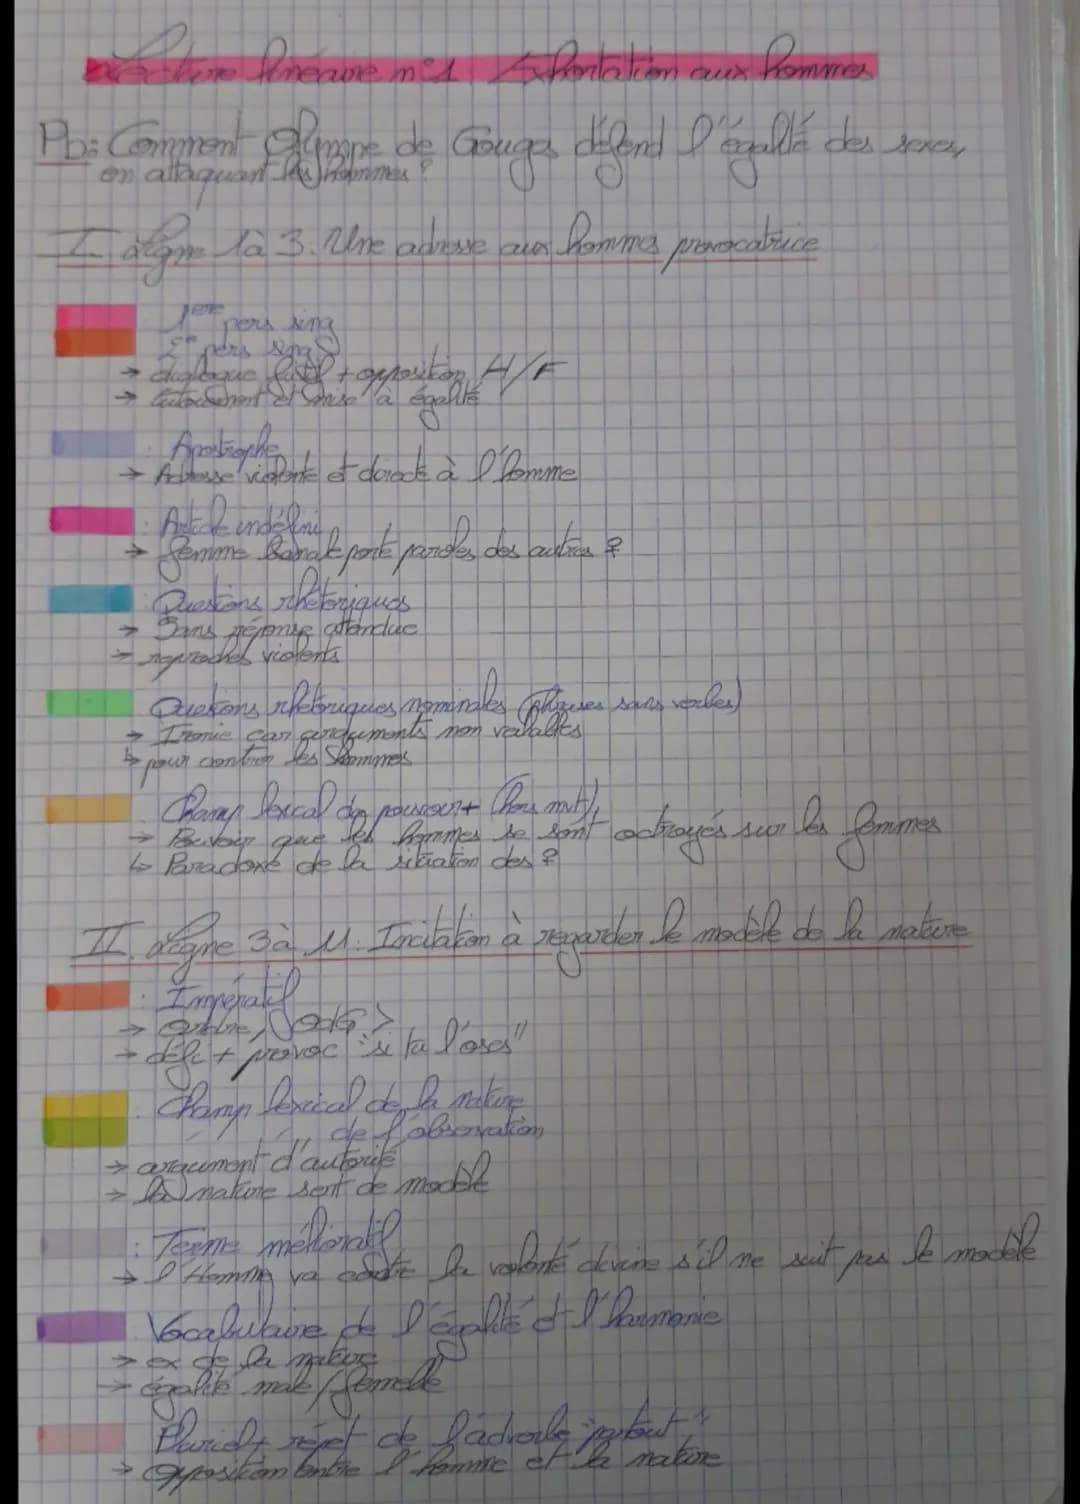 Lecture linéaire n°1 Exhortation aux hommes
Pb: Comment Olympe de Gouges défend l'égalité des sexes,
en attaquant les hommes ?
I. Ligne 1 à 3. Une adresse aux hommes provocatrice
1ere pers sing
2e pers sing
→ dialogue fictif + opposition H/F
→ tutoiement et mise à égalité
: Apostrophe
→ Adresse violente et directe à l'homme
: Article indéfini
→ femme banale porte paroles des autres ♀
: Questions rhétoriques
→ Sans réponse attendue
→ reproches violents
: Questions rhétoriques nominales (phrases sans verbes)
→ Ironie car arguments non valables
↳ pour contrer les hommes
: Champ lexical du pouvoir +
→ Pouvoir que les hommes se sont octroyés sur les femmes
↳ Paradoxe de la situation des ♀
II. Ligne 3 à 11. Incitation à regarder le modèle de la nature
: Impératif
→ ordre, OdG >
→ défi + provoc "si tu l'oses"
: Champ lexical de la nature
de l'observation
→ argument d'autorité
→ la nature sert de modèle
: Terme mélioratif
→ l'Homme va contre la volonté divine s'il ne suit pas le modèle
: Vocabulaire de l'égalité et l'harmonie
→ ex de la nature
→ égalité male / femelle
: Pluriel + répet de l'adverbe "partout"
→ opposition entre l'homme et la nature